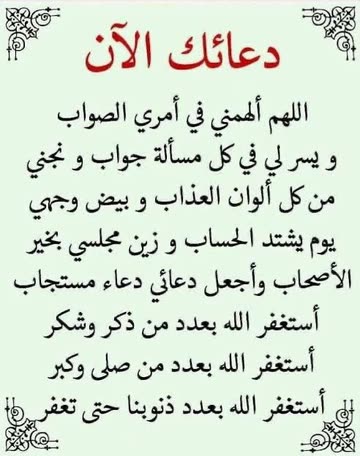 دعائك الآن
اللهم ألهمني في أمري الصواب
و يسر لي في كل مسألة جواب و نجني
من كل ألوان العذاب و بيض وجهي
يوم يشتد الحساب و زين مجلسي بخير
الأصحاب وأجعل دعائي دعاء مستجاب
أستغفر الله بعدد من ذكر وشكر
أستغفر الله بعدد من صلى وكبر
أستغفر الله بعدد ذنوبنا حتى تغفر